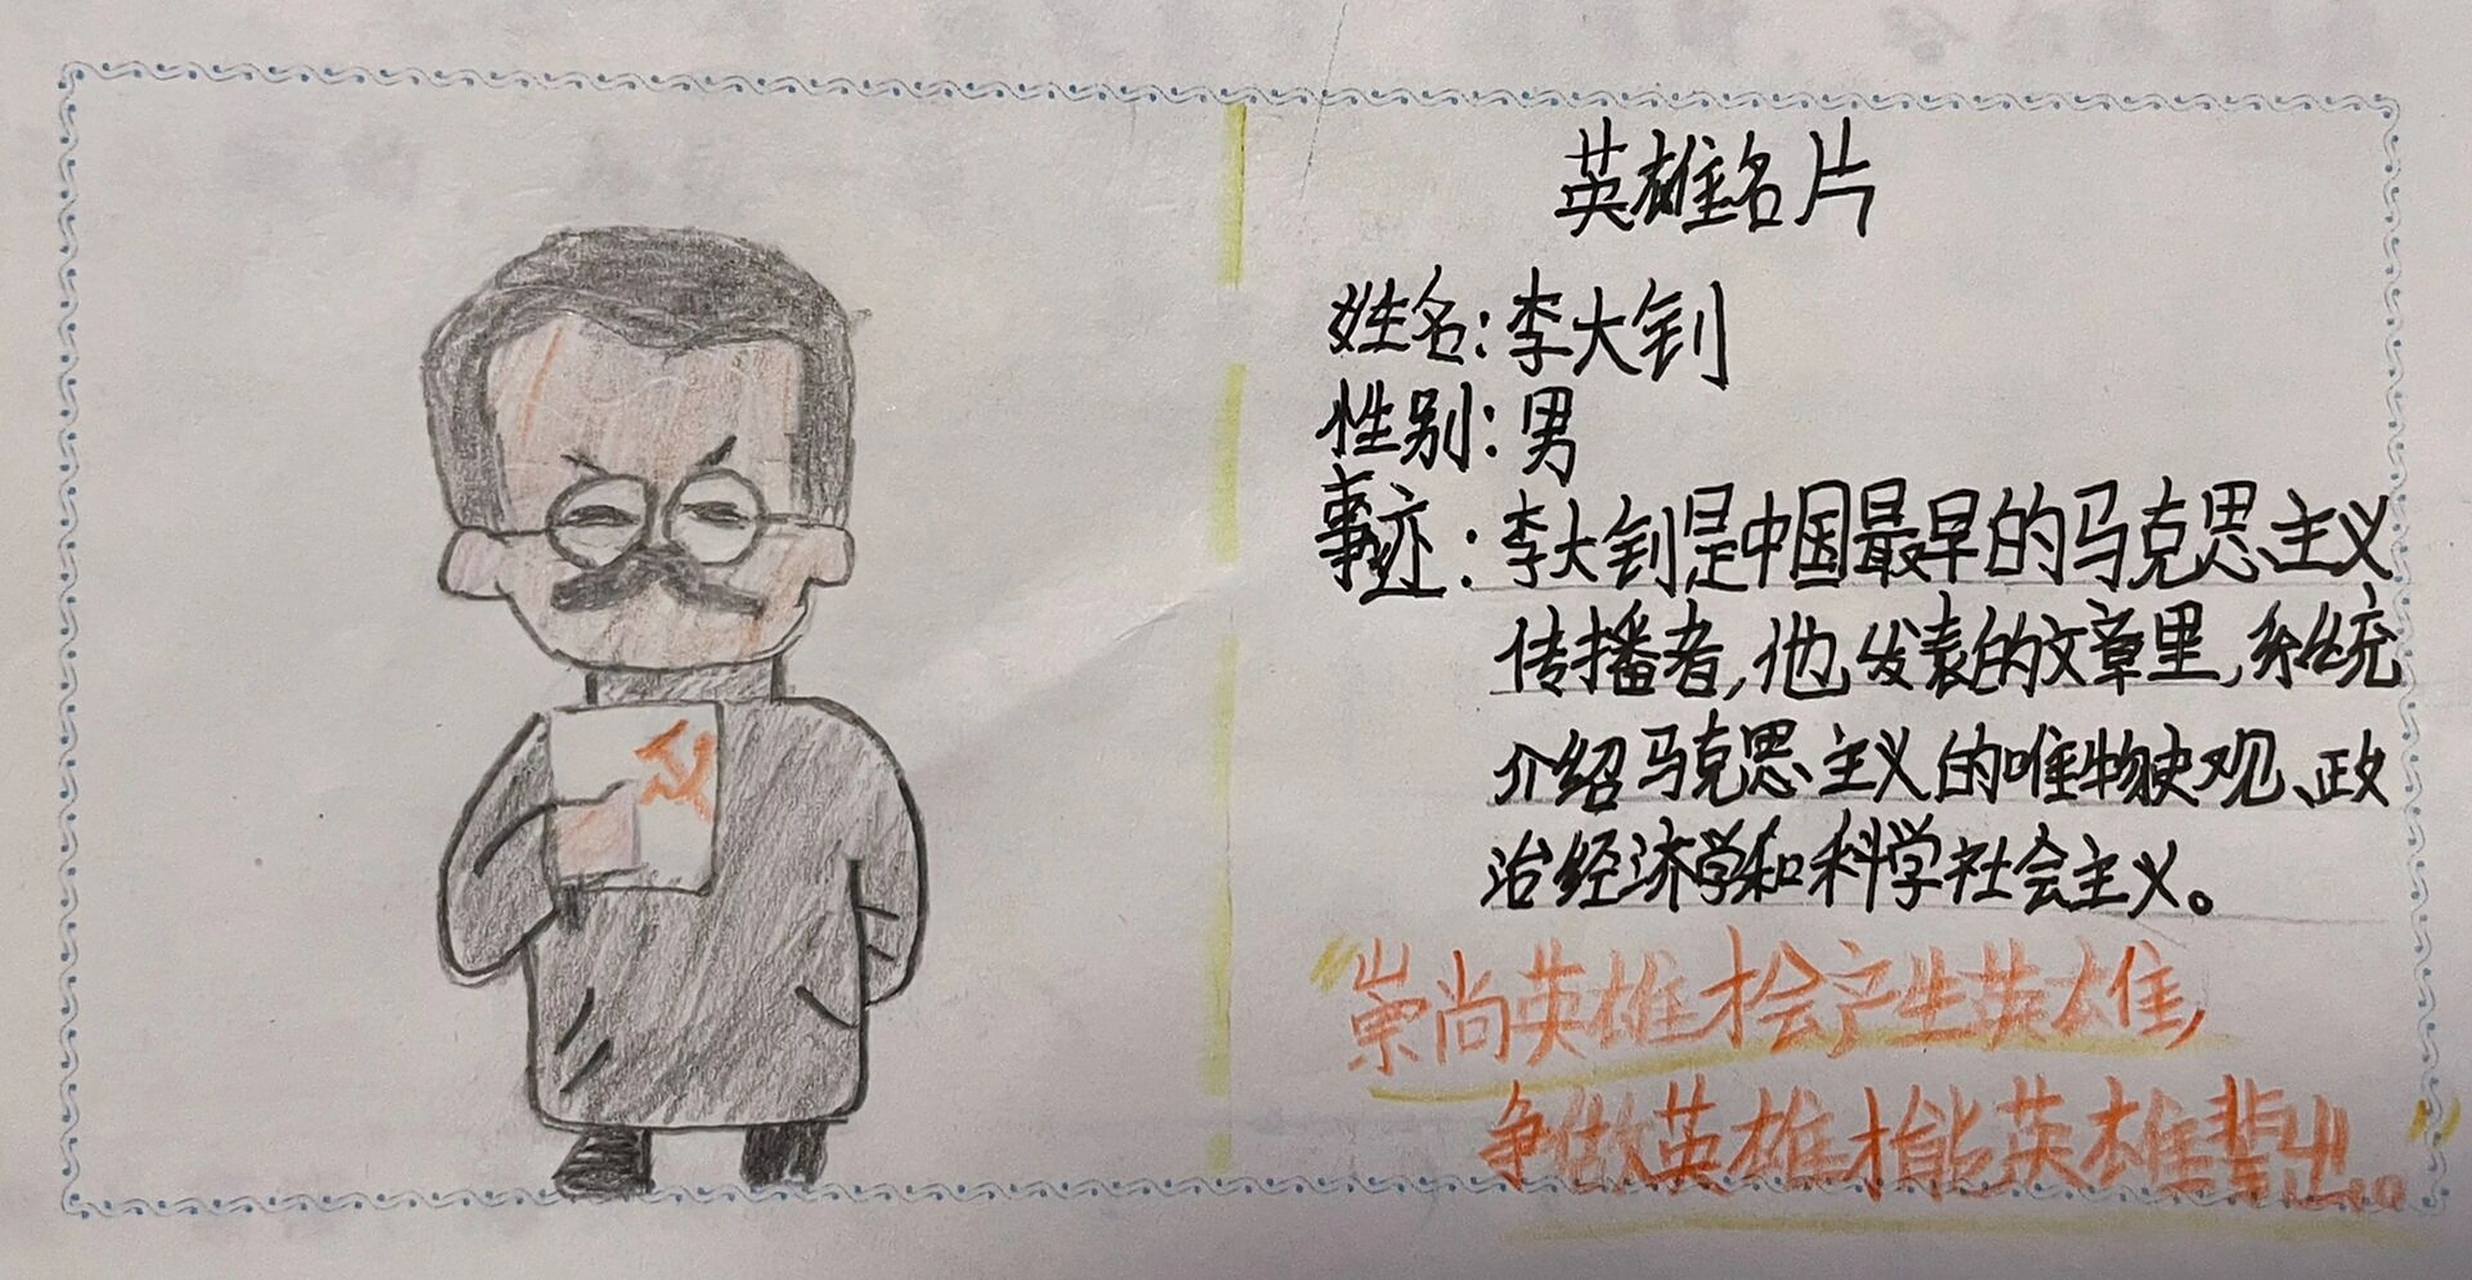 英雄名片
姓名：李大钊
性别：男
事迹：李大钊是中国最早的马克思主义
传播者，他发表的文章里，系统
介绍马克思主义的唯物史观、政
治经济学和科学社会主义。
“崇尚英雄才会产生英雄，
争做英雄才能英雄辈出。”